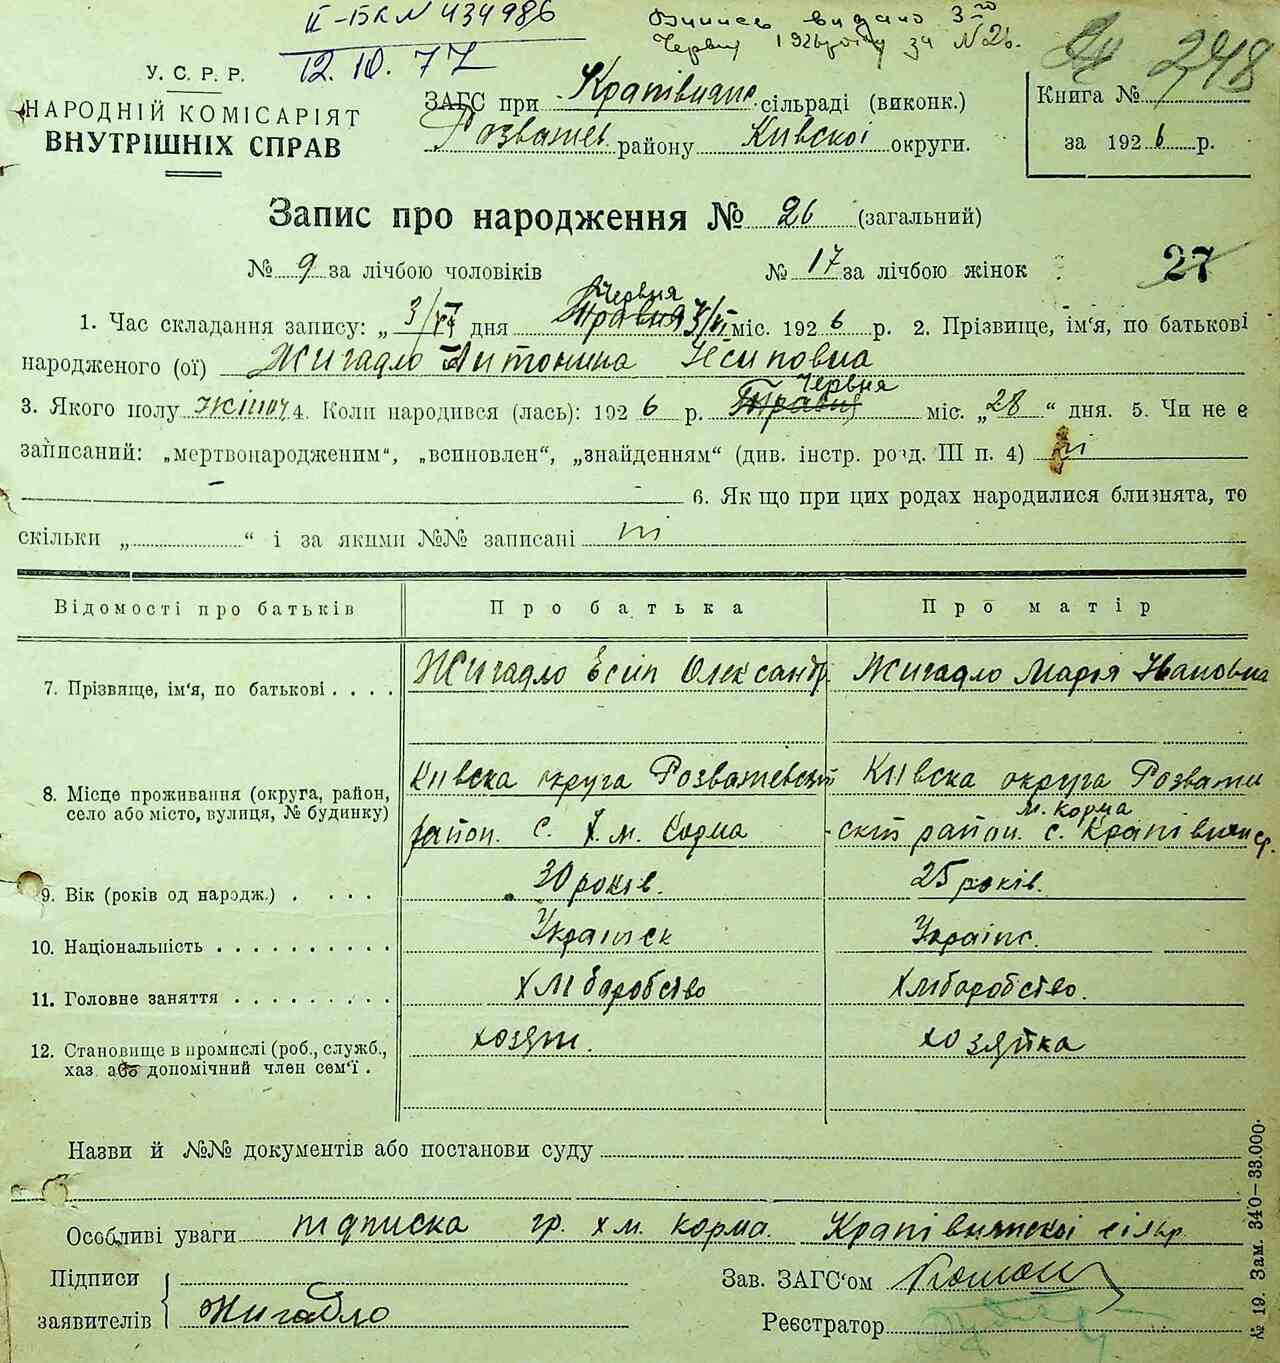 ІІ-БК № 434986
12.10.77
Випись видано 3го
Червня 1926 року за № 26.
248
У. С. Р. Р.
НАРОДНІЙ КОМІСАРІЯТ
ВНУТРІШНІХ СПРАВ
ЗАГС при Крапівнянс. сільраді (виконк.)
Розважев. району Київскоі округи.
Книга №
за 1926 р.
Запис про народження № 26 (загальний)
№ 9 за лічбою чоловіків № 17 за лічбою жінок 27
Червня
1. Час складання запису: „ 3/VI дня Травня 3/VI міс. 1926 р. 2. Прізвище, ім'я, по батькові
народженого (ої) Жигадло Антонина Есиповна
Червня
3. Якого полу жіноч. 4. Коли народився (лась): 1926 р. Травня міс. „28“ дня. 5. Чи не є
записаний: „мертвонародженим“, „всиновлен“, „знайденням“ (див. інстр. розд. III п. 4) ні
6. Як що при цих родах народилися близнята, то
скільки „ “ і за якими №№ записані ні
Відомості про батьків Про батька Про матір
7. Прізвище, ім'я, по батькові . . . . Жигадло Есип Олександр. Жигадло Марія Івановна
8. Місце проживання (округа, район, село або місто, вулиця, № будинку)
Київска округа Розважевский
район. с. х.м. Корма
Київска округа Розваже
м. Корма
ский район. с. Крапівнянс.
9. Вік (років од народж.) . . . . 30 років. 25 років.
10. Національність . . . . . . . . . . Українск Украінс.
11. Головне заняття . . . . . . . . . Хліборобство Хліборобство.
12. Становище в промислі (роб., служб., хаз або допомічний член сем'ї . хозяін. хозяйка
Назви й №№ документів або постанови суду
Особливі уваги підписка гр. х м. корма. Крапівнянскоі сільр.
Підписи
заявителів Жигадло
Зав. ЗАГС'ом
Реєстратор
№ 19. Зам. 340—33.000.